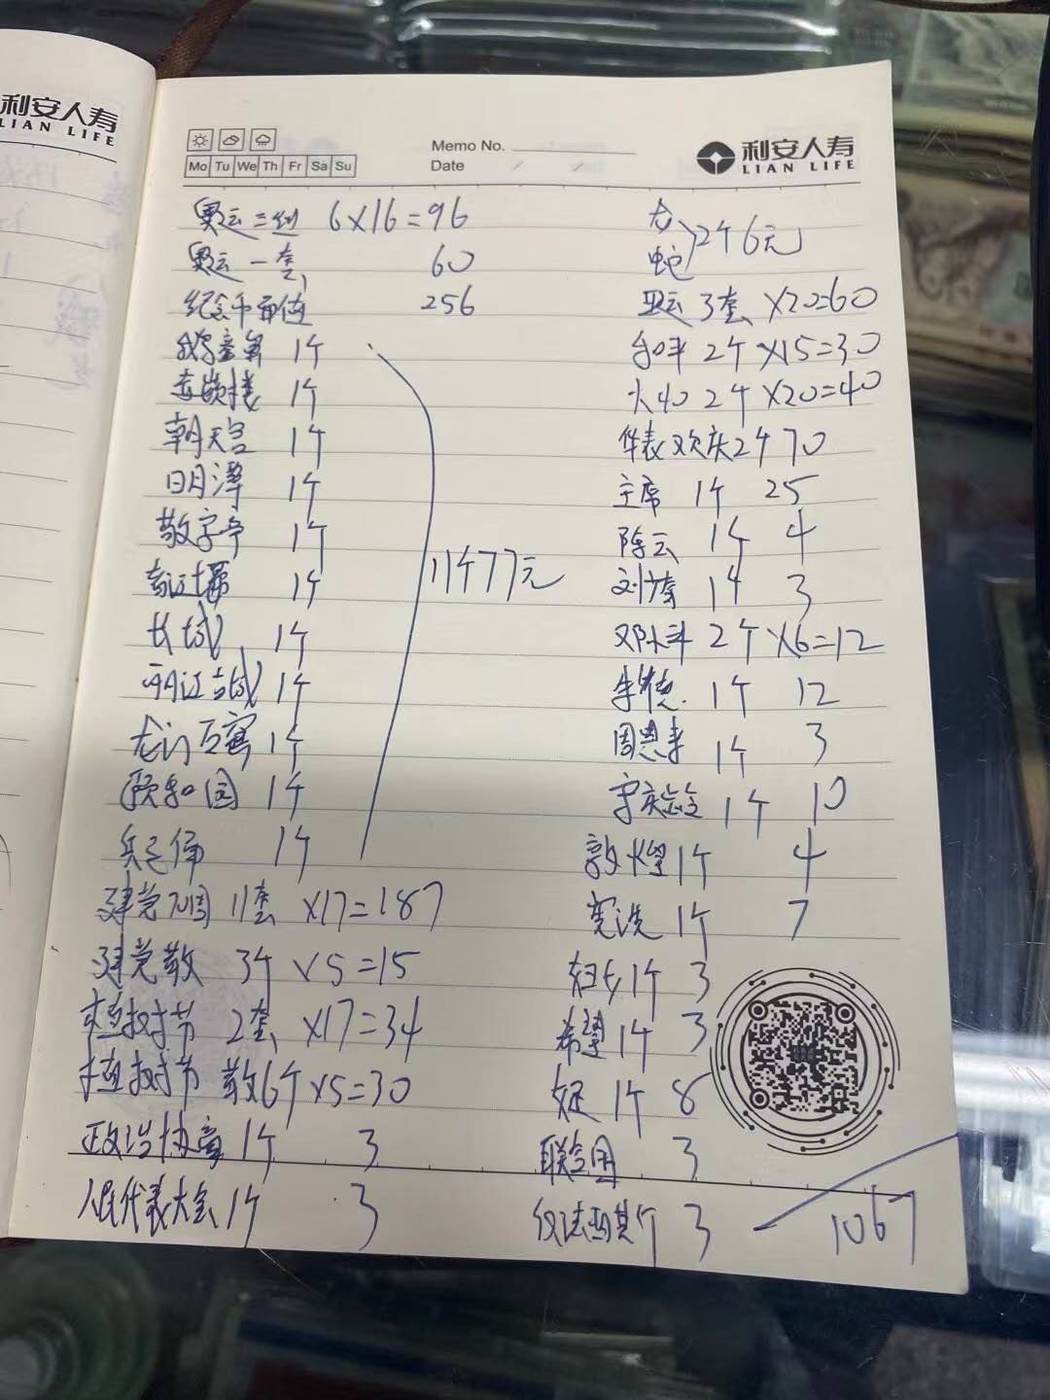 利安人寿
LIAN LIFE
Memo No.
Mo Tu We Th Fr Sa Su
Date / /
利安人寿
LIAN LIFE
奥运三组 6×16=96
奥运一套 60
纪念币面值 256
1个
赤嵌楼 1个
朝天宫 1个
日月潭 1个
敬字亭 1个
1个
长城 1个
丽江古城 1个
龙门石窟 1个
颐和园 1个
兵马俑 1个
11个77元
建党70周 11套 ×17=187
建党散 3个 ×5=15
植树节 2套 ×17=34
植树节 散6个×5=30
政治协商 1个 3
人民代表大会 1个 3
龙
蛇
246元
亚运 3套 ×20=60
和平 2个 ×15=30
大40 2个 ×20=40
欢庆2个 70
主席 1个 25
陈云 1个 4
刘 1个 3
邓小平 2个 ×6=12
朱德 1个 12
周恩来 1个 3
宋庆龄 1个 10
敦煌 1个 4
宪法 1个 7
妇女 1个 3
希望 1个 3
1个 8
联合国 3
3
1067